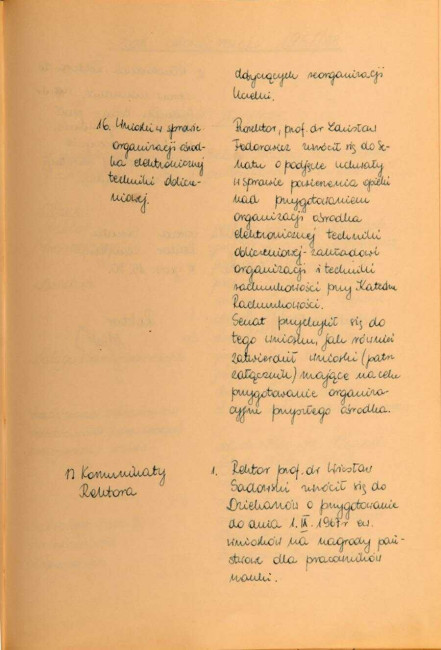 dotyczących reorganizacji
Uczelni.
16. Wnioski w sprawie
organizacji ośrod-
ka elektronicznej
techniki oblicze-
niowej.
Prorektor, prof. dr Zdzisław
Fedorowicz zwrócił się do Se-
natu o podjęcie uchwały
w sprawie powierzenia opieki
nad przygotowaniem
organizacji ośrodka
elektronicznej techniki
obliczeniowej - zakładowi
organizacji i techniki
rachunkowości przy Katedrze
Rachunkowości.
Senat przychylił się do
tego wniosku, jak również
zatwierdził wnioski (patrz
załącznik) mające na celu
przygotowanie organiza-
cyjne przyszłego ośrodka.
17 Komunikaty
Rektora
1. Rektor prof. dr Wiesław
Sadowski zwrócił się do
Dziekanów o przygotowanie
do dnia 1. IX. 1967 r ew.
wniosków na nagrody pań-
stwow dla pracowników
nauki.